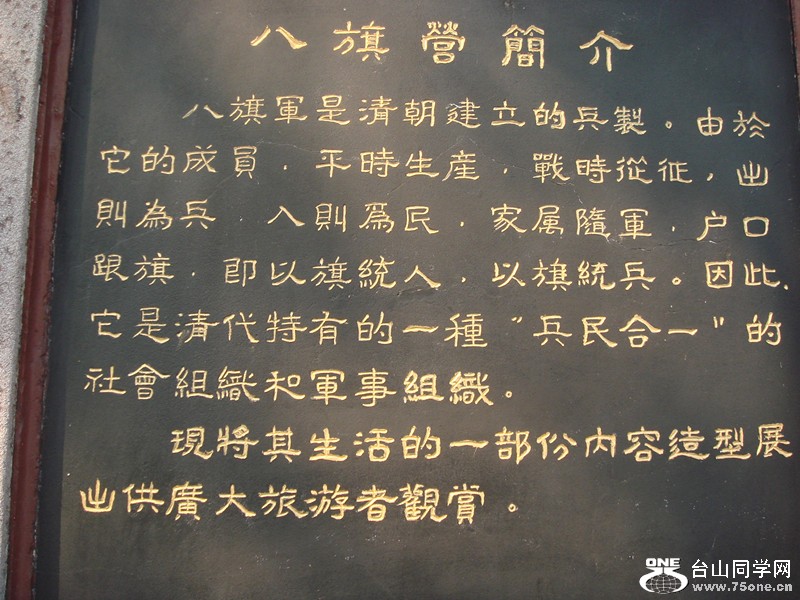 八旗營簡介
八旗軍是清朝建立的兵製。由於
它的成員，平時生産，戰時從征，出
則為兵，入則爲民，家属隨軍，户口
跟旗，即以旗統人，以旗統兵。因此，
它是清代特有的一種“兵民合一”的
社會組織和軍事組織。
現將其生活的一部份内容造型展
出供廣大旅游者觀賞。
ONE 台山同学网
www.75one.cn